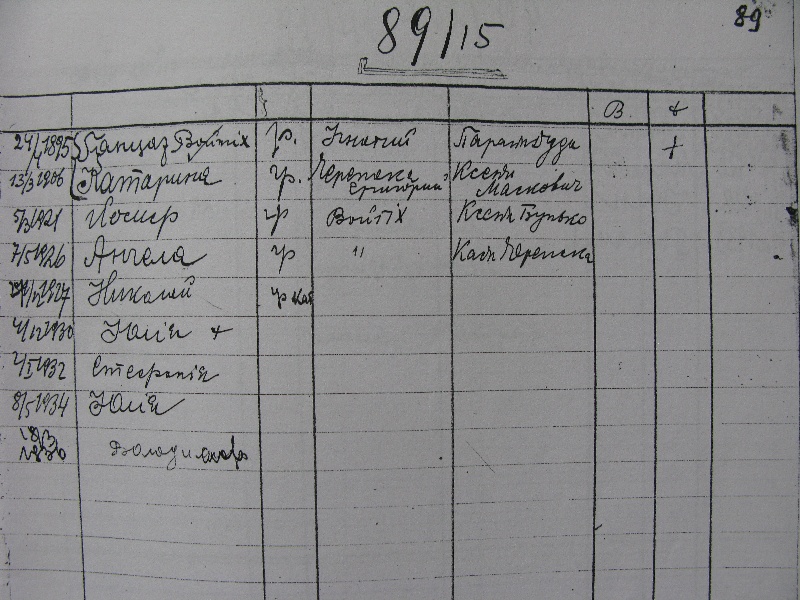 89/15
89
В. +
24/4 1895 Войтіх гр. Ігнатій +
13/3 1906 Катарина гр. Черепака Григорий Ксеня Маскович
5/3 1921 Йосиф гр Войтіх Ксеня Бунько
7/5 1926 Ангела гр " Кат. Черепака
1927 Николай гр кат
4/12 1930 Юлія +
4/I 1932 Стефанія
8/5 1934 Юлія
18/3 1936 Володимир